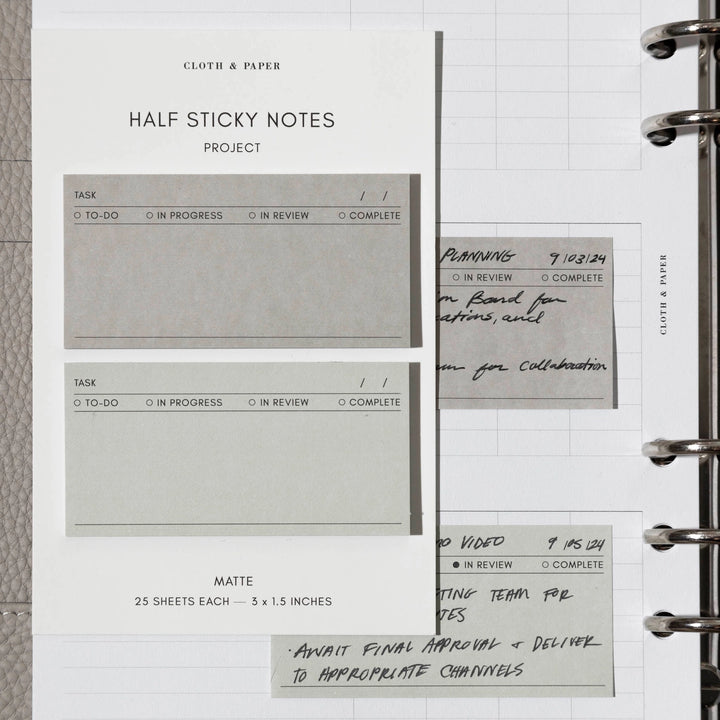 CLOTH & PAPER
HALF STICKY NOTES
PROJECT
TASK / /
TO-DO IN PROGRESS IN REVIEW COMPLETE
TASK / /
TO-DO IN PROGRESS IN REVIEW COMPLETE
MATTE
25 SHEETS EACH — 3 x 1.5 INCHES
PLANNING 9/03/24
IN REVIEW COMPLETE
Board for
and
for Collaboration
VIDEO 9/05/24
IN REVIEW COMPLETE
TEAM FOR
· AWAIT FINAL APPROVAL + DELIVER
TO APPROPRIATE CHANNELS
CLOTH & PAPER